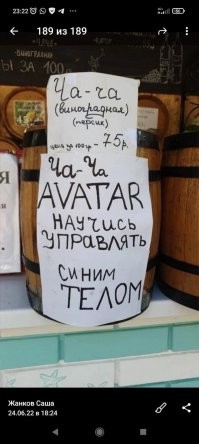 23:22
189 из 189
ВИНОГРАДНИ
Ы ЗА 100
Ча-ча
(виноградная)
(персик)
цена за 100гр - 75р.
Ча-Ча
AVATAR
НАУЧИСЬ
УПРАВЛЯТЬ
СИНИМ
ТЕЛОМ
Жанков Саша
24.06.22 в 18:24